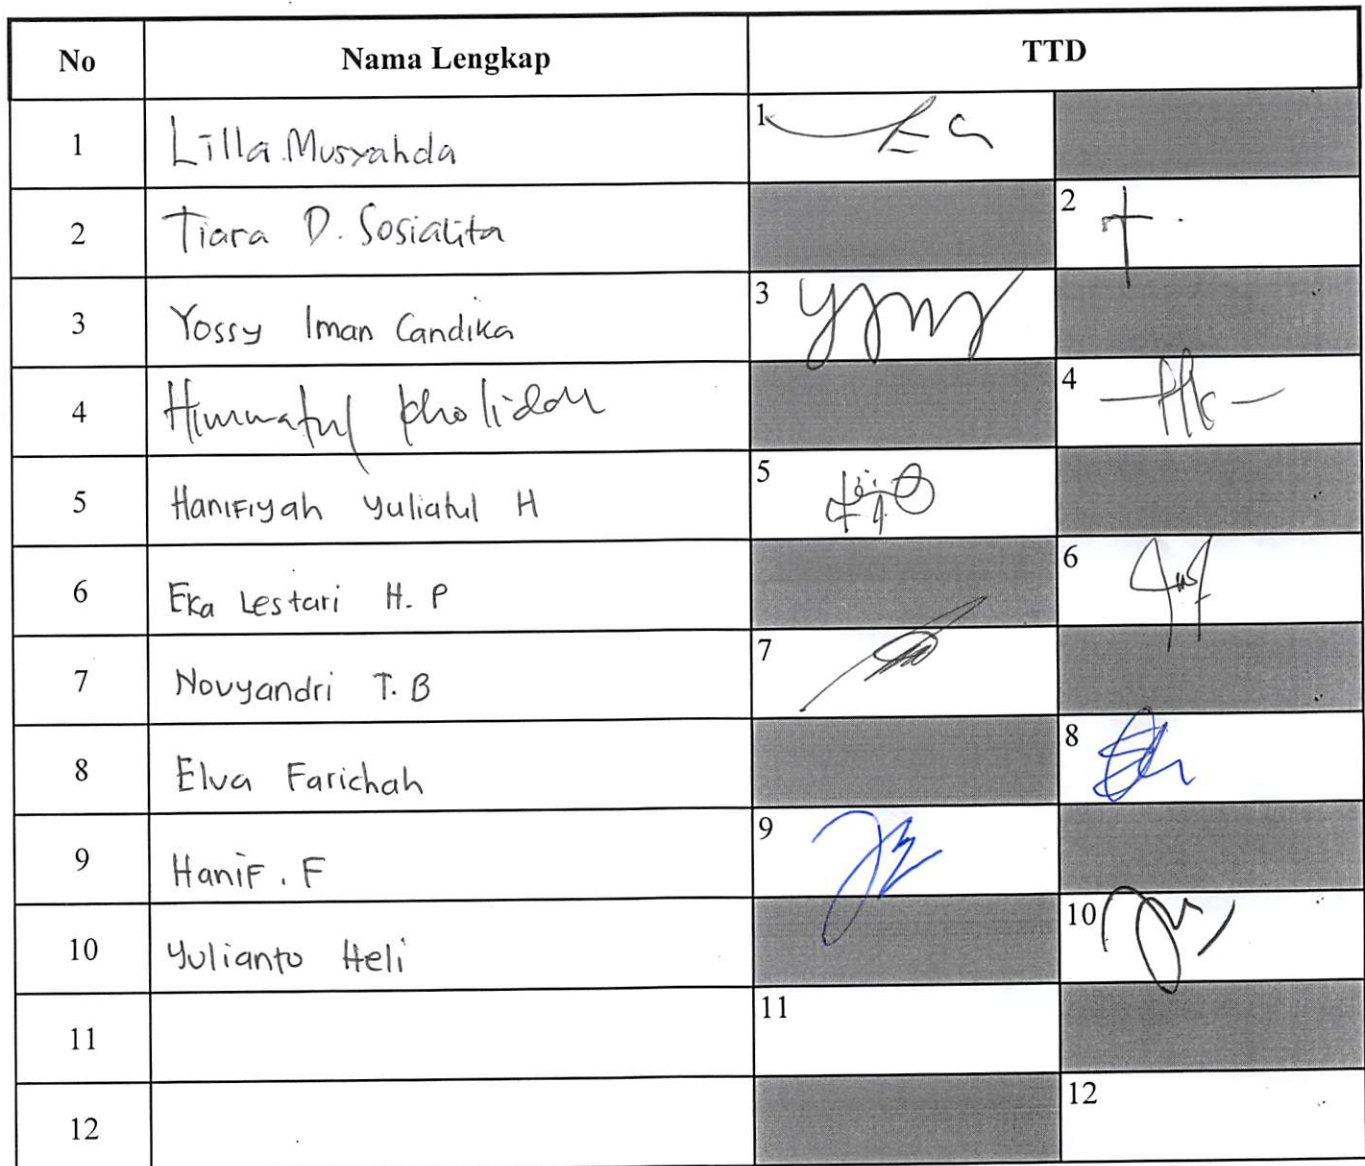 No Nama Lengkap TTD
1 Lilla Musyahda 1
2 Tiara D. Sosialita 2
3 Yossy Iman Candika 3
4 Himmatul Kholidah 4
5 Hanifiyah Yuliatul H 5
6 Eka Lestari H. P 6
7 Novyandri T. B 7
8 Elva Farichah 8
9 Hanif . F 9
10 Yulianto Heli 10
11 11
12 12